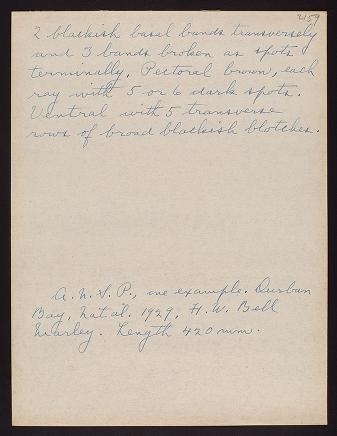 2159
2 blackish basal bands transversely
and 3 bands broken as spots
terminally. Pectoral brown, each
ray with 5 or 6 dark spots.
Ventral with 5 transverse
rows of broad blackish blotches.
A. N. S. P., one example. Durban
Bay, Natal. 1929. H. W. Bell
Marley. Length 420 mm.